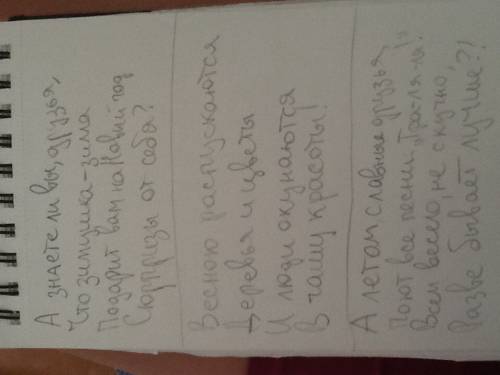 А знаете ли вы, друзья,
Что зимушка-зима
Подарит вам на Новый год
Сюрпризы от себя?
Весною распускаются
Деревья и цветы
И люди окунаются
В чашу красоты!
А летом, славные друзья,
Поют все песни "Тра-ля-ля!"
Всем весело, не скучно,
Разве бывает лучше?!